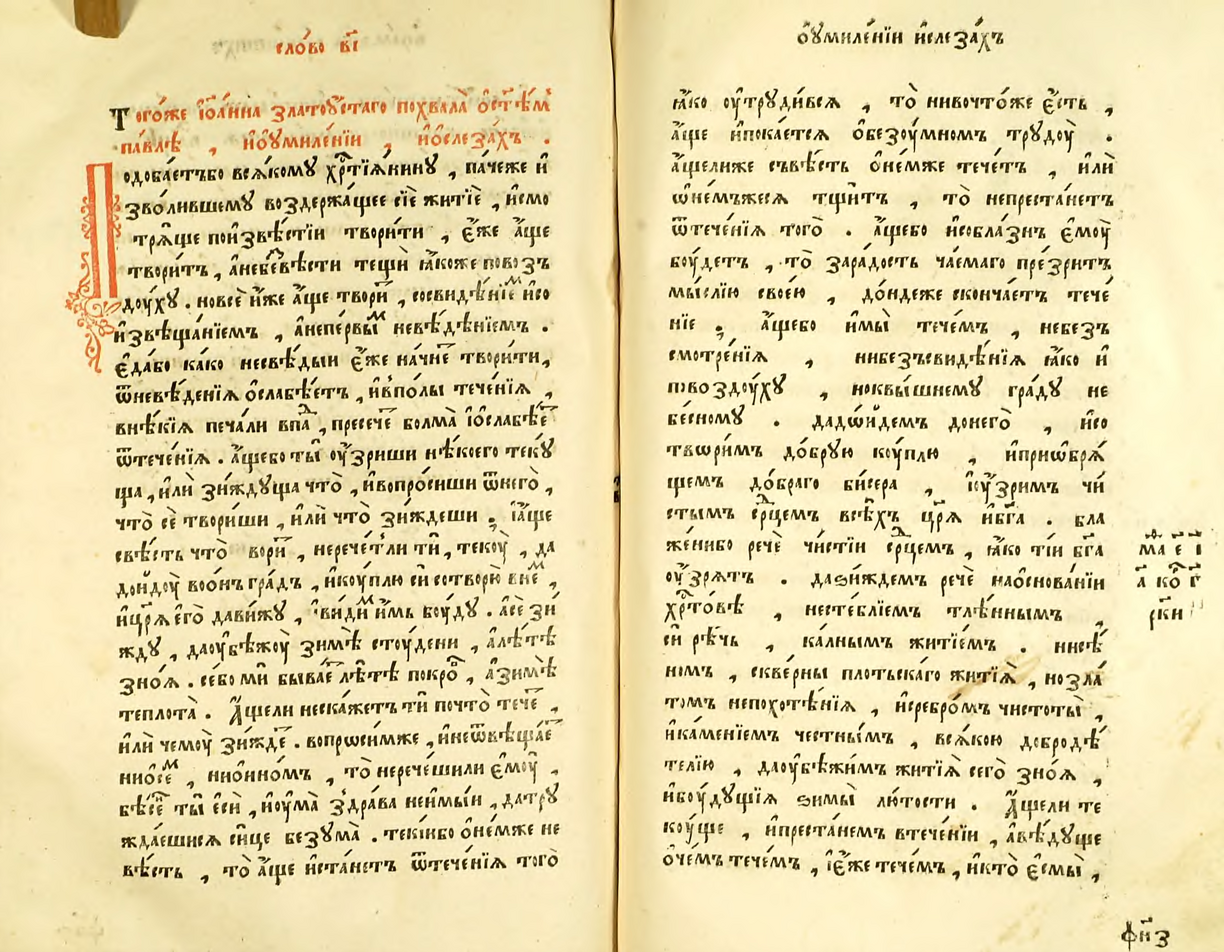 сло́во в҃і
Того́же іѡ́анна златоꙋ́стаго похвала̀ ѻ҆ст҃ѣ́м
па́влѣ , и҆ѻ҆ꙋмиле́нїи , и҆ѻ҆слеза́хъ .
Подоба́етъбо вся́комꙋ хрⷭ҇тїя́нинꙋ , па́чеже и҆
зво́лившемꙋ воздержа́щее сїѐ житїѐ , и҆смо
трѧ́ще поизвѣ́стїи твори́ти , є҆́же а҆́ще
твори́тъ , а҆небезвѣ́сти тещѝ ꙗ҆́коже повоз̾
дꙋ́хꙋ . новсѐ и҆́же а҆́ще твори́т , сосвидѣ́нїем и҆со
и҆звѣща́нїемъ , а҆непе́рвым невѣ́дѣнїемъ .
є҆да́бо ка́ко несвѣ́дыи є҆́же на́чнет твори́ти,
ѿневѣ́денїѧ ѻ҆слабѣ́етъ , и҆вполы̀ тече́нїѧ ,
внѣ́кїѧ печа́ли впад , пресече́т болма̀ і҆ѻ҆слабѣ́ет
ѿтече́нїѧ . а҆́щебо ты̀ ᲂу҆́зриши нѣ́коего текꙋ́
ща , и҆лѝ зи́ждꙋща что̀ , и҆вопро́сиши ѿнего̀ ,
что̀ сѐ твори́ши , и҆лѝ что̀ зи́ждеши . і҆а҆́ще
свѣ́сть что̀ вори́т , нерече́тли тѝ , текꙋ̀ , да
доидꙋ̀ воо́нъ гра́дъ , и҆кꙋ́плю сѝ сотворю̀ внем ,
и҆цр҃ѧ̀ є҆го̀ дави́жꙋ , и҆види́м и҆мь бꙋ́дꙋ . а҆сѐ зи́
ждꙋ , даᲂу҆бѣжꙋ̀ зимѣ̀ стꙋ́дени , а҆лѣ́тѣ
зно́ѧ . се́бо мѝ быва́ет лѣ́тѣ покро́в , а҆зимѣ̀
теплота̀ . А҆́щели неска́жетъ тѝ почто̀ тече́т ,
и҆лѝ чемꙋ̀ зи́ждет . вопрѡси́мже , и҆неѿвѣща́ет
ниѻ҆се́м , ниѻ҆нно́мъ , то̀ нерече́шили є҆мꙋ̀ ,
бѣ́сен ты̀ є҆сѝ , и҆ᲂу҆ма̀ здра́ва неимы́и , датрꙋ
жда́ешисѧ си́це безꙋма̀ . теки́ибо ѻ҆не́мже не
вѣ́сть , то̀ а҆́ще и҆ста́нетъ ѿтече́нїѧ того̀
ѻ҆ꙋмиле́нїи и҆слеза́хъ
ꙗ҆́ко ᲂу҆трꙋди́всѧ , то̀ нивочто́же є҆́сть ,
а҆́ще и҆пока́етсѧ ѻ҆безꙋ́мном трꙋдꙋ̀ .
а҆щели́же съвѣ́сть ѻ҆не́мже тече́тъ , и҆лѝ
ѡ҆не́мъжесѧ тщи́т , то̀ непреста́нетъ
ѿтече́нїѧ того̀ . а҆́щебо и҆собла́знъ є҆мꙋ̀
бꙋ́детъ , то̀ зара́дость ча́емаго пре́зритъ
мы́слїю свое́ю , до́ндеже сконча́етъ тече
нїе . а҆́щебо и҆мы̀ тече́мъ , небез̾
смотре́нїѧ , нибезъсвиде́нїѧ ꙗ҆́ко и҆
повоздꙋ́хꙋ , ноквы́шнемꙋ гра́дꙋ не
бе́сномꙋ . дадѡи́демъ донего̀ , и҆со
твѡри́мъ до́брꙋю кꙋ́плю , и҆приѡбрѧ́
щемъ до́браго би́сера , і҆ᲂу҆́зримъ чи́
стымъ срⷣцемъ всѣ́хъ цр҃ѧ̀ и҆бг҃а . бла
же́нибо речѐ чи́стїи срⷣцемъ , ꙗ҆́ко ті́и бг҃а
ᲂу҆́зрѧтъ . даѕи́ждемъ речѐ наѻ҆снова́нїи
хрⷭ҇то́вѣ , несте́блїемъ тлѣ́ннымъ ,
сѝ рѣ́чь , ка́лнымъ житїе́мъ . нисѣ́
номъ , скве́рны пло́тьскаго житїѧ̀ , нозла́
томъ непохотѣ́нїѧ , и҆сребро́мъ чистоты̀ ,
и҆ка́менїемъ че́стнымъ , вся́кою добродѣ́
телїю , даᲂу҆бѣжи́мъ житїѧ̀ сего̀ зно́ѧ ,
и҆бꙋ́дꙋщїѧ ѕимы̀ лю́тости . А҆́щели те
кꙋ́ще , и҆преста́немъ втече́нїи , а҆вѣ́дꙋще
ѻ҆че́мъ тече́мъ , і҆є҆́же тече́мъ , и҆кто̀ є҆смы̀ ,
фн҃з